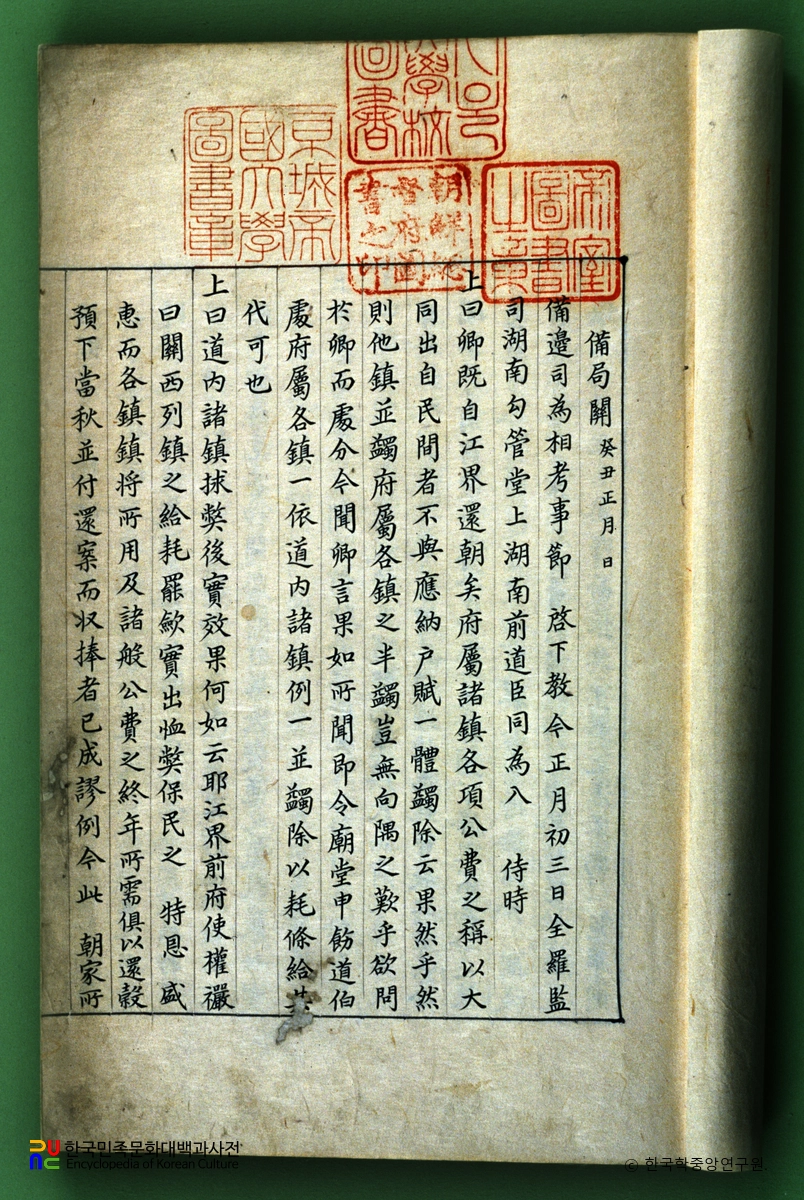 備局關 癸丑正月 日
備邊司為相考事節 啓下敎今正月初三日全羅監
司湖南勾管堂上湖南前道臣同為入 侍時
上曰卿旣自江界還朝矣府屬諸鎮各項公費之稱以大
同出自民間者不與應納户賦一體蠲除云果然乎然
則他鎮並蠲府屬各鎮之半蠲豈無向隅之歎乎欲問
於卿而處分今聞卿言果如所聞即令廟堂申飭道伯
處府屬各鎮一依道內諸鎮例一並蠲除以耗條給
代可也
上曰道內諸鎮捄弊後實效果何如云耶江界前府使權𧟓
曰關西列鎮之給耗罷歛實出恤弊保民之 特恩 盛
惠而各鎮鎮将所用及諸般公費之終年所需俱以還穀
預下當秋並付還案而収捧者已成謬例今此 朝家所
帝室圖書之章
朝鮮總督府圖書之印
京城帝國大學圖書章
學校
圖書
한국민족문화대백과사전
Encyclopedia of Korean Culture
ⓒ 한국학중앙연구원